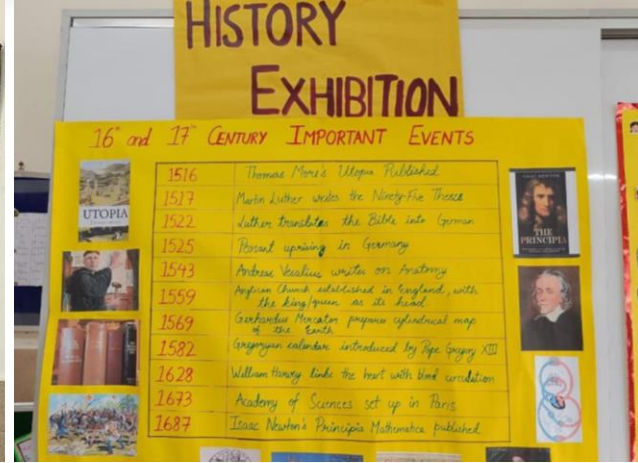 HISTORY
EXHIBITION
16th and 17th CENTURY IMPORTANT EVENTS
1516 Thomas More's Utopia Published
1517 Martin Luther writes the Ninety-Five Theses
1522 Luther translates the Bible into German
1525 Peasant uprising in Germany
1543 Andreas Vesalius writes on Anatomy
1559 Anglican Church established in England, with
the king/queen as its head
1569 Gerhardus Mercator prepares cylindrical map
of the Earth
1582 Gregoryan calendar introduced by Pope Gregory XIII
1628 William Harvey links the heart with blood circulation
1673 Academy of Sciences set up in Paris
1687 Isaac Newton's Principia Mathematica published
UTOPIA
ISAAC NEWTON
THE
PRINCIPIA